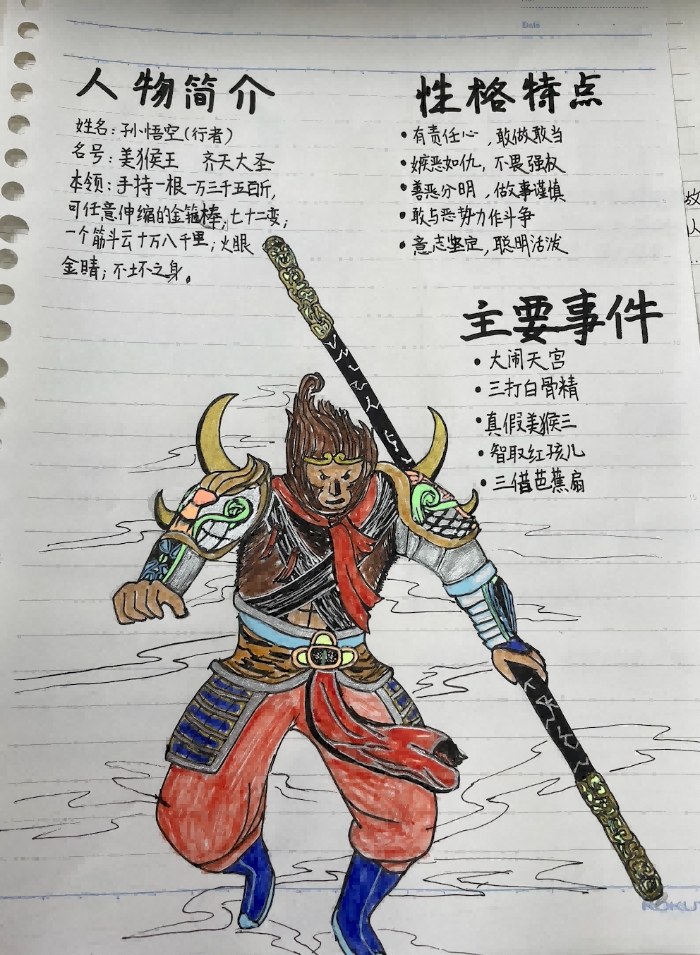 人物简介
姓名：孙悟空（行者）
名号：美猴王 齐天大圣
本领：手持一根一万三千五百斤，
可任意伸缩的金箍棒；七十二变；
一个筋斗云十万八千里；火眼
金睛；不坏之身。
性格特点
•有责任心，敢做敢当
•嫉恶如仇，不畏强权
•善恶分明，做事谨慎
•敢与恶势力作斗争
•意志坚定，聪明活泼
主要事件
•大闹天宫
•三打白骨精
•真假美猴王
•智取红孩儿
•三借芭蕉扇
Date